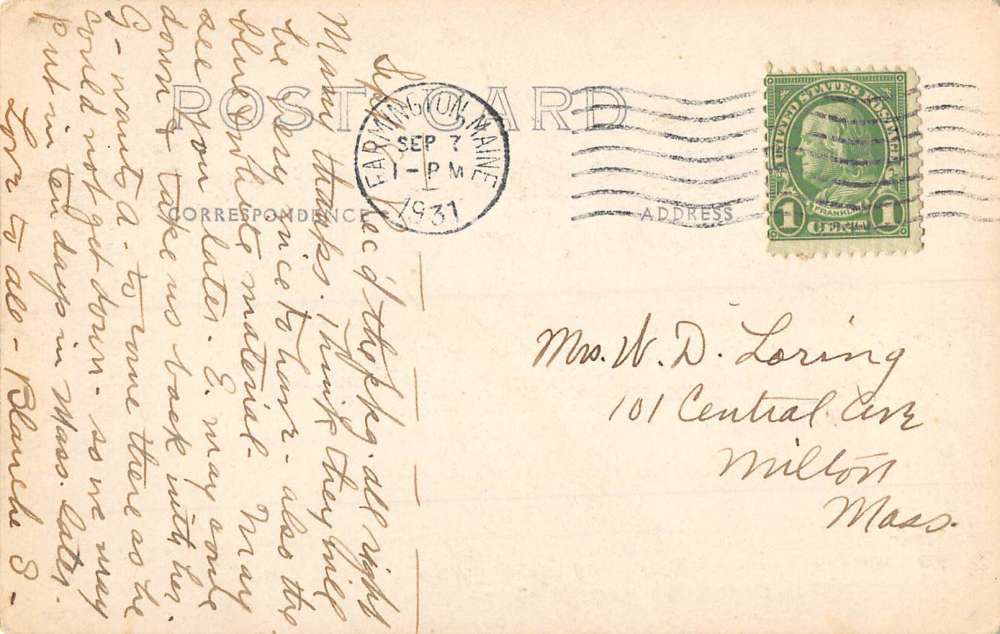 POST CARD
FARMINGTON, MAINE
SEP 7
1 - PM
1931
CORRESPONDENCE
ADDRESS
UNITED STATES POSTAGE
FRANKLIN
1 CENT 1
Mrs. W. D. Loring
101 Central Ave
Milton
Mass.
Rec'd the pkg. all right
Many thanks. Think they will
be very nice to have - also the
blue & white material - May
see you later. E. may come
down & take us back with her.
G - wants A - to come there as he
could not get down - so we may
put in ten days in Mass. later.
Love to all - Blanche S -